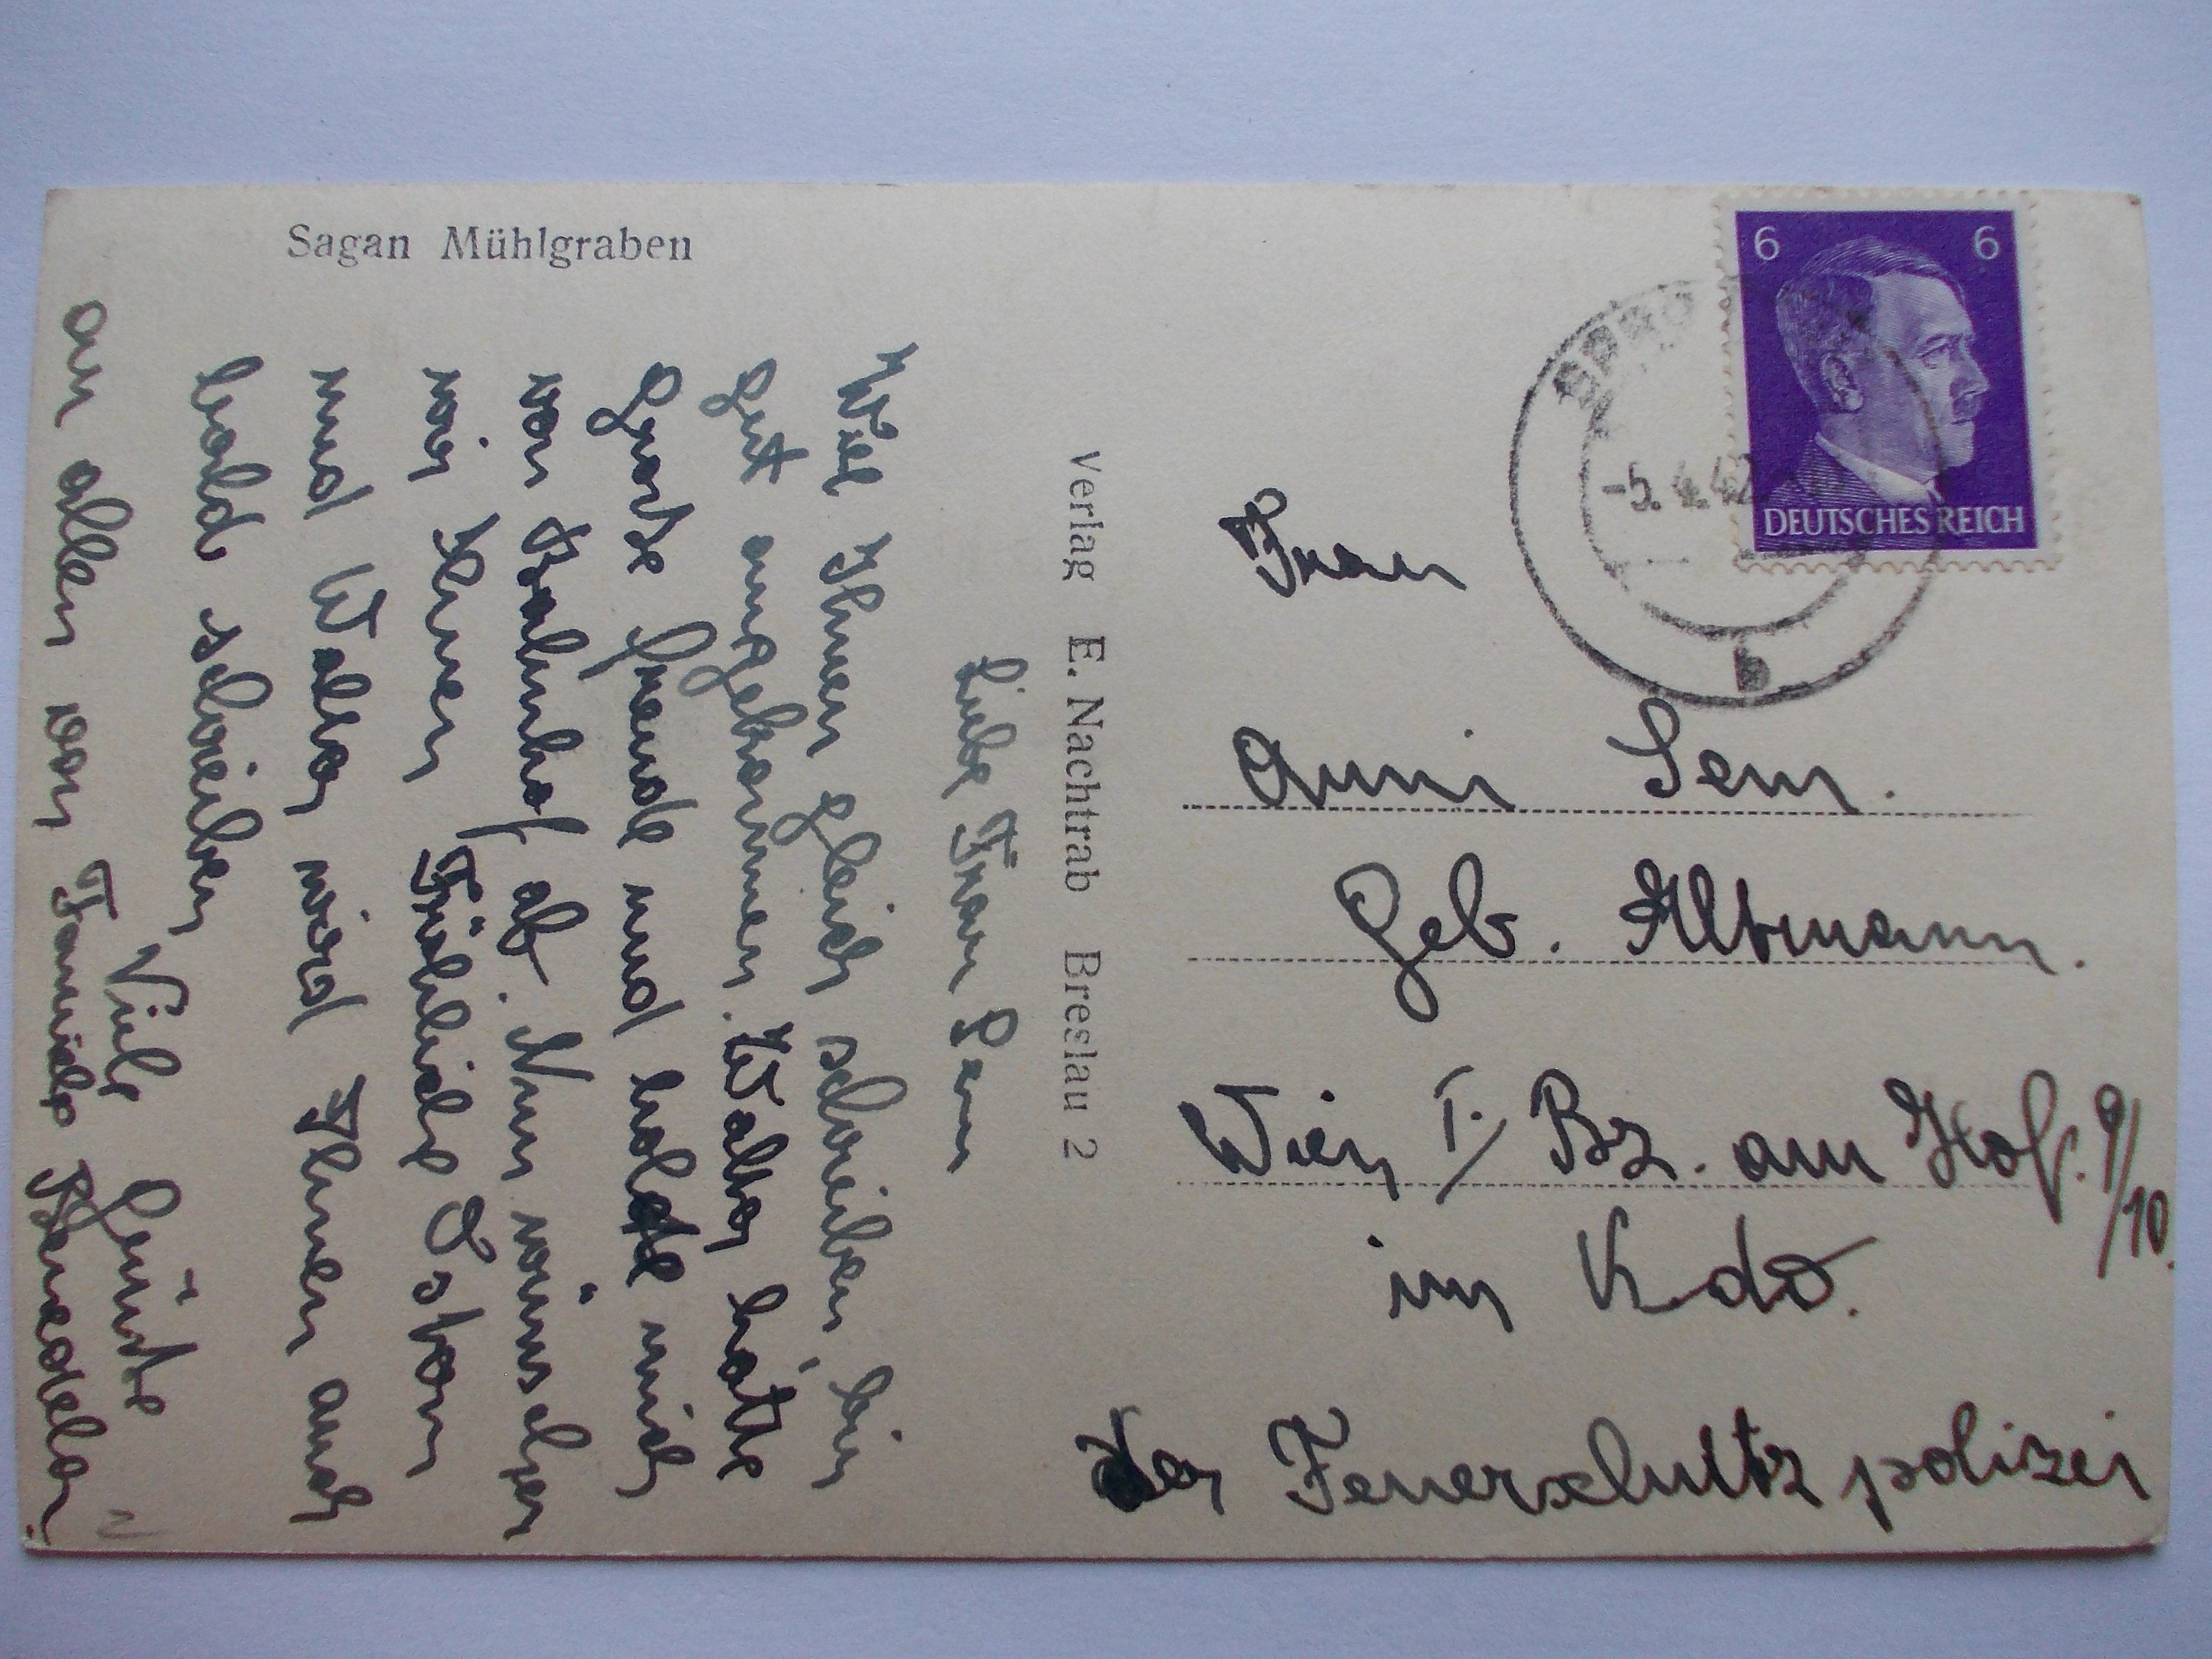 Sagan Mühlgraben
Verlag E. Nachtrab Breslau 2
6 6
DEUTSCHES REICH
-5.4.42
b
Frau
Anni Sem.
Geb. Altmann.
Wien I./ Bz. am Hof. 9/10.
im Kdo.
der Feuerschultz polizei
Liebe Frau Sem
Will Ihnen gleich schreiben bin
gut angekommen. Walter hatte
Große Freude und holte mich
von Bahnhof ab. Nun wünschen
wir Ihnen Fröhliche Ostern
und Walter wird Ihnen auch
bald schreiben
Viele Grüße
an allen von Familie